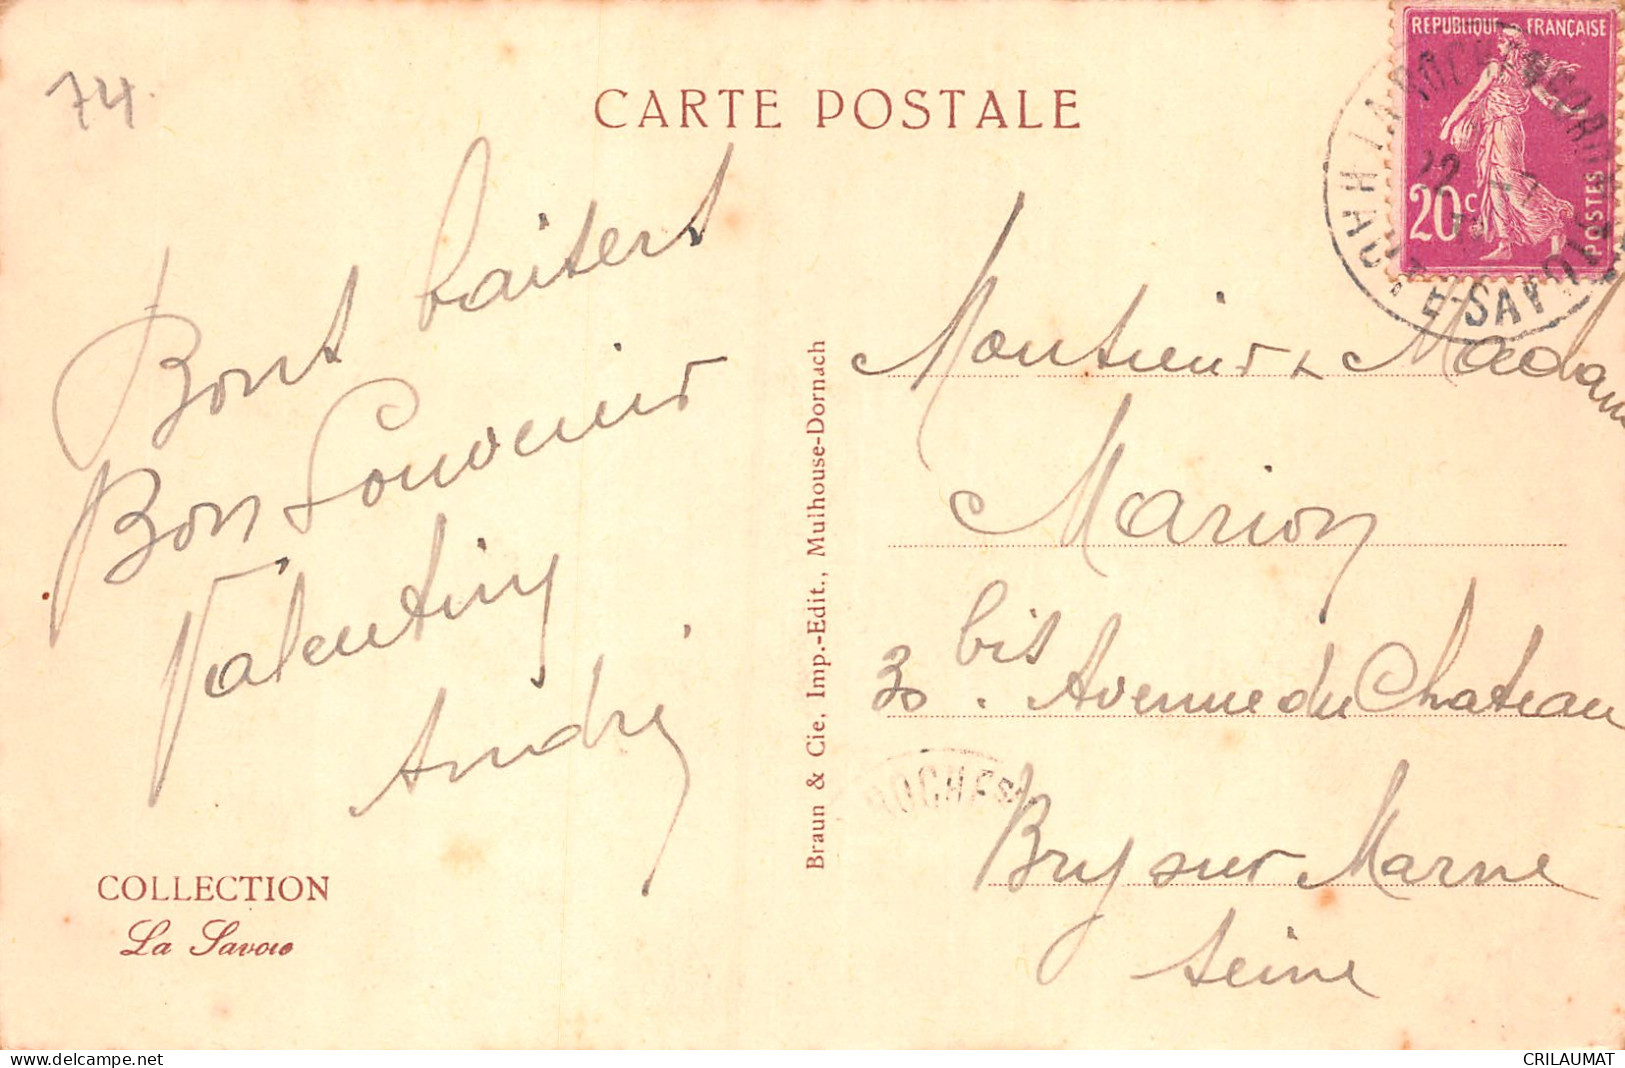 74.
CARTE POSTALE
REPUBLIQUE FRANÇAISE
20c
POSTES
HAUTE-SAVOIE
Bons baisers
Bon Souvenir
Valentin
André
COLLECTION
La Savoie
Braun & Cie, Imp.-Edit., Mulhouse-Dornach
Monsieur & Madame
Marion
30 bis. Avenue du Chateau
Bry sur Marne
Seine
ROCHE S
delcampe.net
CRILAUMAT